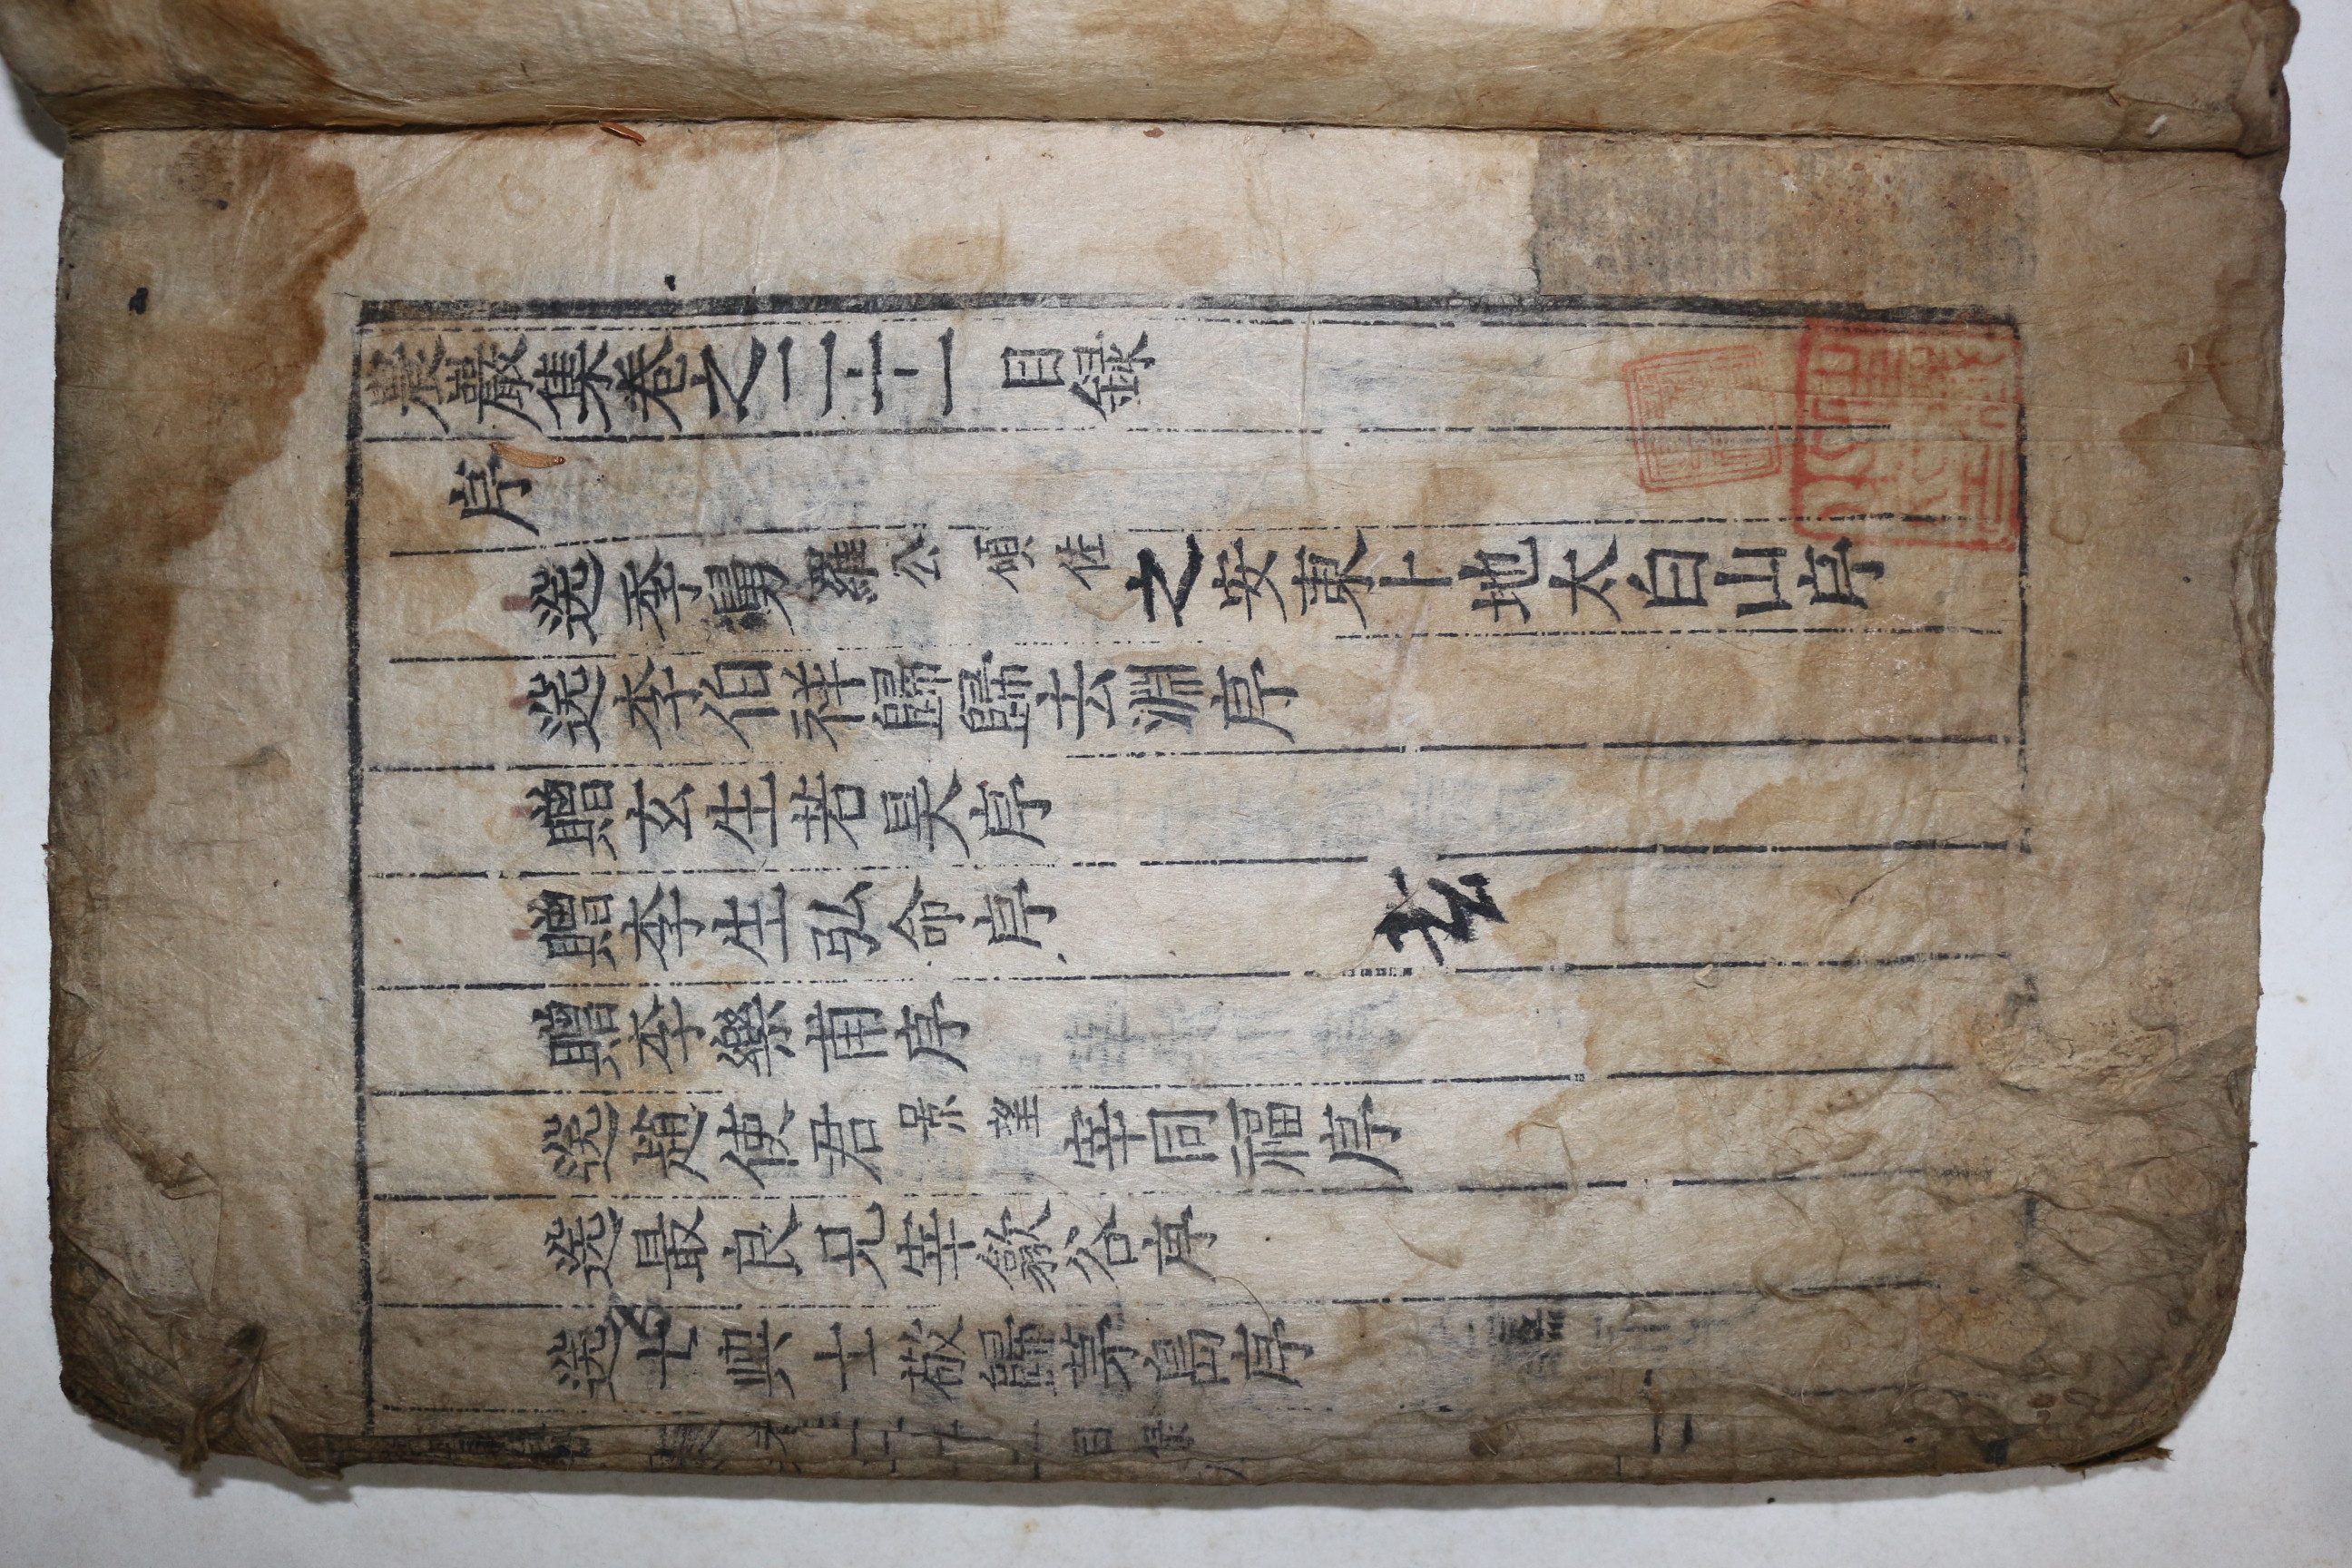 農巖集卷之二十一 目録
序
送季舅羅公碩佐之安東卜地太白山序
送李伯祥歸歸去淵序
贈玄生若昊序
贈李生弘命序
玄
贈李樂甫序
送趙使君景望宰同福序
送最良兄宰歙谷序
送士興士敬歸茅島序
目録